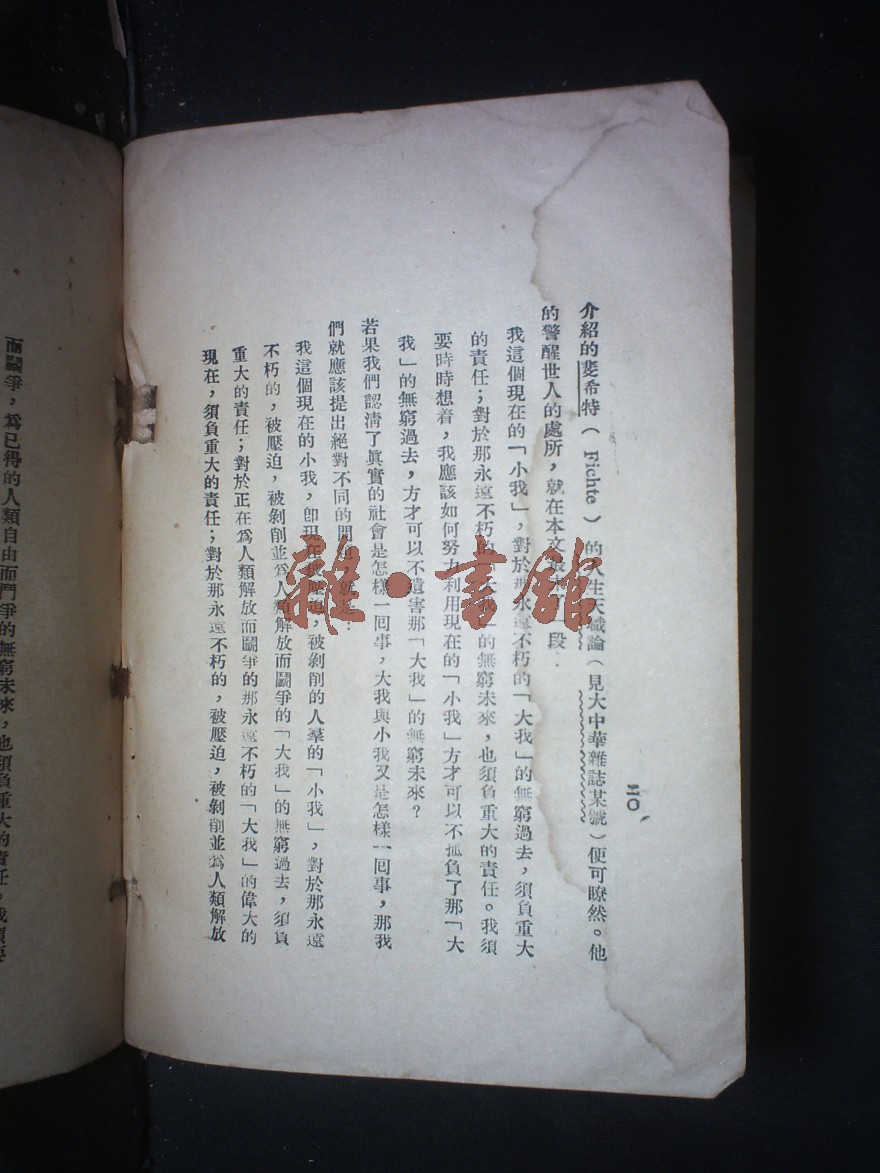 二〇
介紹的斐希特（Fichte）的人生天職論（見大中華雜誌某號）便可瞭然。他
的警醒世人的處所，就在本文 一段：
我這個現在的「小我」，對於那永遠不朽的「大我」的無窮過去，須負重大
的責任；對於那永遠不朽的「大我」的無窮未來，也須負重大的責任。我須
要時時想着，我應該如何努力利用現在的「小我」方才可以不孤負了那「大
我」的無窮過去，方才可以不遺害那「大我」的無窮未來？
若果我們認淸了眞實的社會是怎樣一囘事，大我與小我又是怎樣一囘事，那我
們就應該提出絕對不同的問題，就是：
我這個現在的小我，卽現在被壓迫，被剝削的人羣的「小我」，對於那永遠
不朽的，被壓迫，被剝削並爲人類解放而鬭爭的「大我」的無窮過去，須負
重大的責任；對於正在爲人類解放而鬭爭的那永遠不朽的「大我」的偉大的
現在，須負重大的責任；對於那永遠不朽的，被壓迫，被剝削並爲人類解放
而鬭爭，爲已得的人類自由而鬥爭的無窮未來，也須負重大的責任。我須要
雜·書館